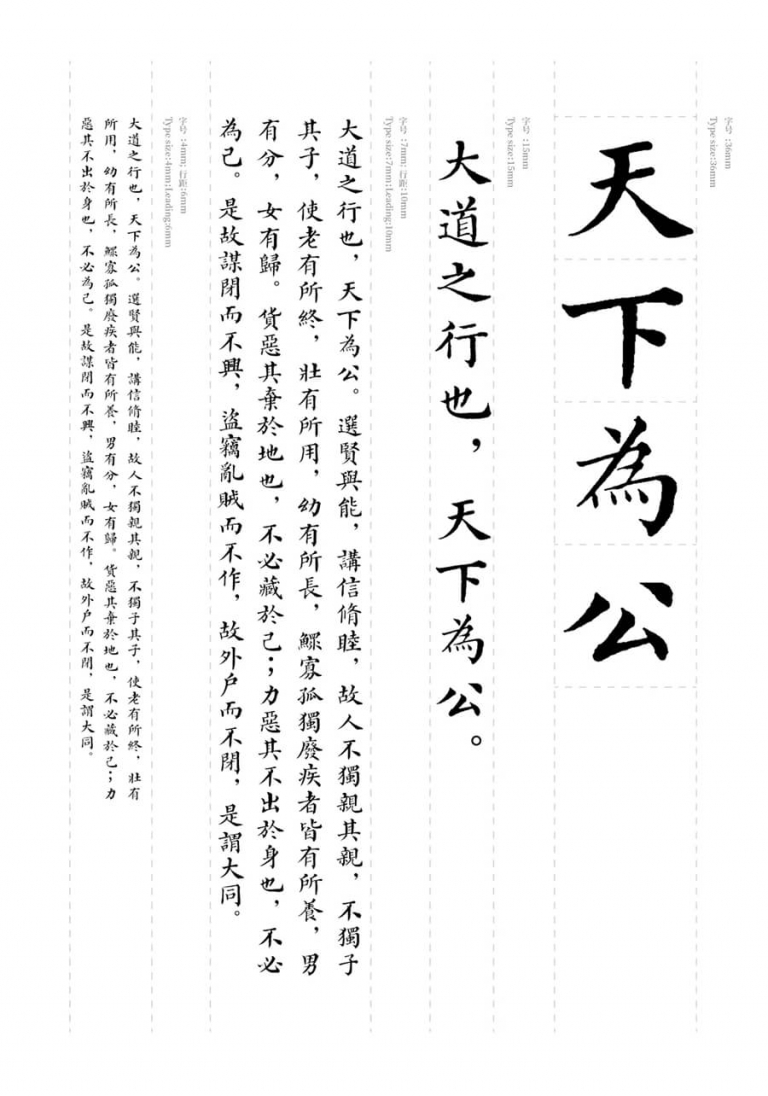 字号:36mm
Type size:36mm
天下為公
字号:15mm
Type size:15mm
大道之行也，天下為公。
字号:7mm; 行距:10mm
Type size:7mm;Leading:10mm
大道之行也，天下為公。選賢與能，講信脩睦，故人不獨親其親，不獨子
其子，使老有所終，壯有所用，幼有所長，鰥寡孤獨廢疾者皆有所養，男
有分，女有歸。貨惡其棄於地也，不必藏於己；力惡其不出於身也，不必
為己。是故謀閉而不興，盜竊亂賊而不作，故外戶而不閉，是謂大同。
字号:4mm; 行距:6mm
Type size:4mm;Leading:6mm
大道之行也，天下為公。選賢與能，講信脩睦，故人不獨親其親，不獨子其子，使老有所終，壯有
所用，幼有所長，鰥寡孤獨廢疾者皆有所養，男有分，女有歸。貨惡其棄於地也，不必藏於己；力
惡其不出於身也，不必為己。是故謀閉而不興，盜竊亂賊而不作，故外戶而不閉，是謂大同。